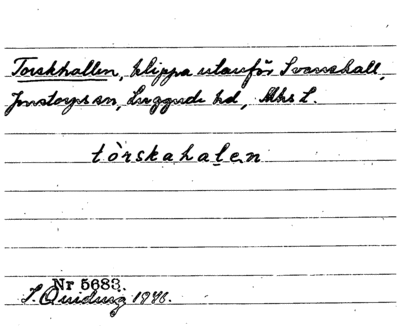 Torskhallen, klippa utanför Svanshall,
Jonstorps sn, Luggude hd, Mhs L.
tòrskahalen
Nr 5683.
1976.